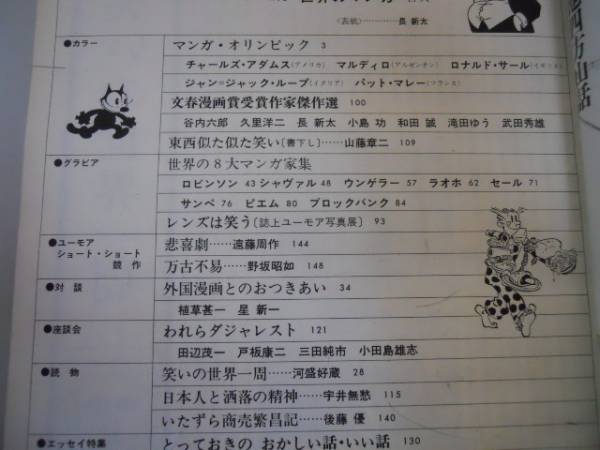 世界のマンガ
<表紙>…………長 新太
●カラー
マンガ・オリンピック 3
チャールズ・アダムス(アメリカ) マルディロ(アルゼンチン) ロナルド・サール(イギリス)
ジャン=ジャック・ループ(イタリア) パット・マレー(フランス)
文春漫画賞受賞作家傑作選 100
谷内六郎 久里洋二 長 新太 小島 功 和田 誠 滝田ゆう 武田秀雄
東西似た似た笑い[書下し]……山藤章二 109
●グラビア
世界の8大マンガ家集
ロビンソン 43 シャヴァル 48 ウンゲラー 57 ラオホ 62 セール 71
サンペ 76 ビエム 80 ブロックバンク 84
レンズは笑う[誌上ユーモア写真展] 93
●ユーモア
ショート・ショート
競作
悲喜劇……遠藤周作 144
万古不易……野坂昭如 148
●対談
外国漫画とのおつきあい 34
植草甚一 星 新一
●座談会
われらダジャレスト 121
田辺茂一 戸板康二 三田純市 小田島雄志
●読物
笑いの世界一周……河盛好蔵 28
日本人と洒落の精神……宇井無愁 115
いたずら商売繁昌記……後藤 優 140
●エッセイ特集
とっておきの おかしい話・いい話 130
四方山話